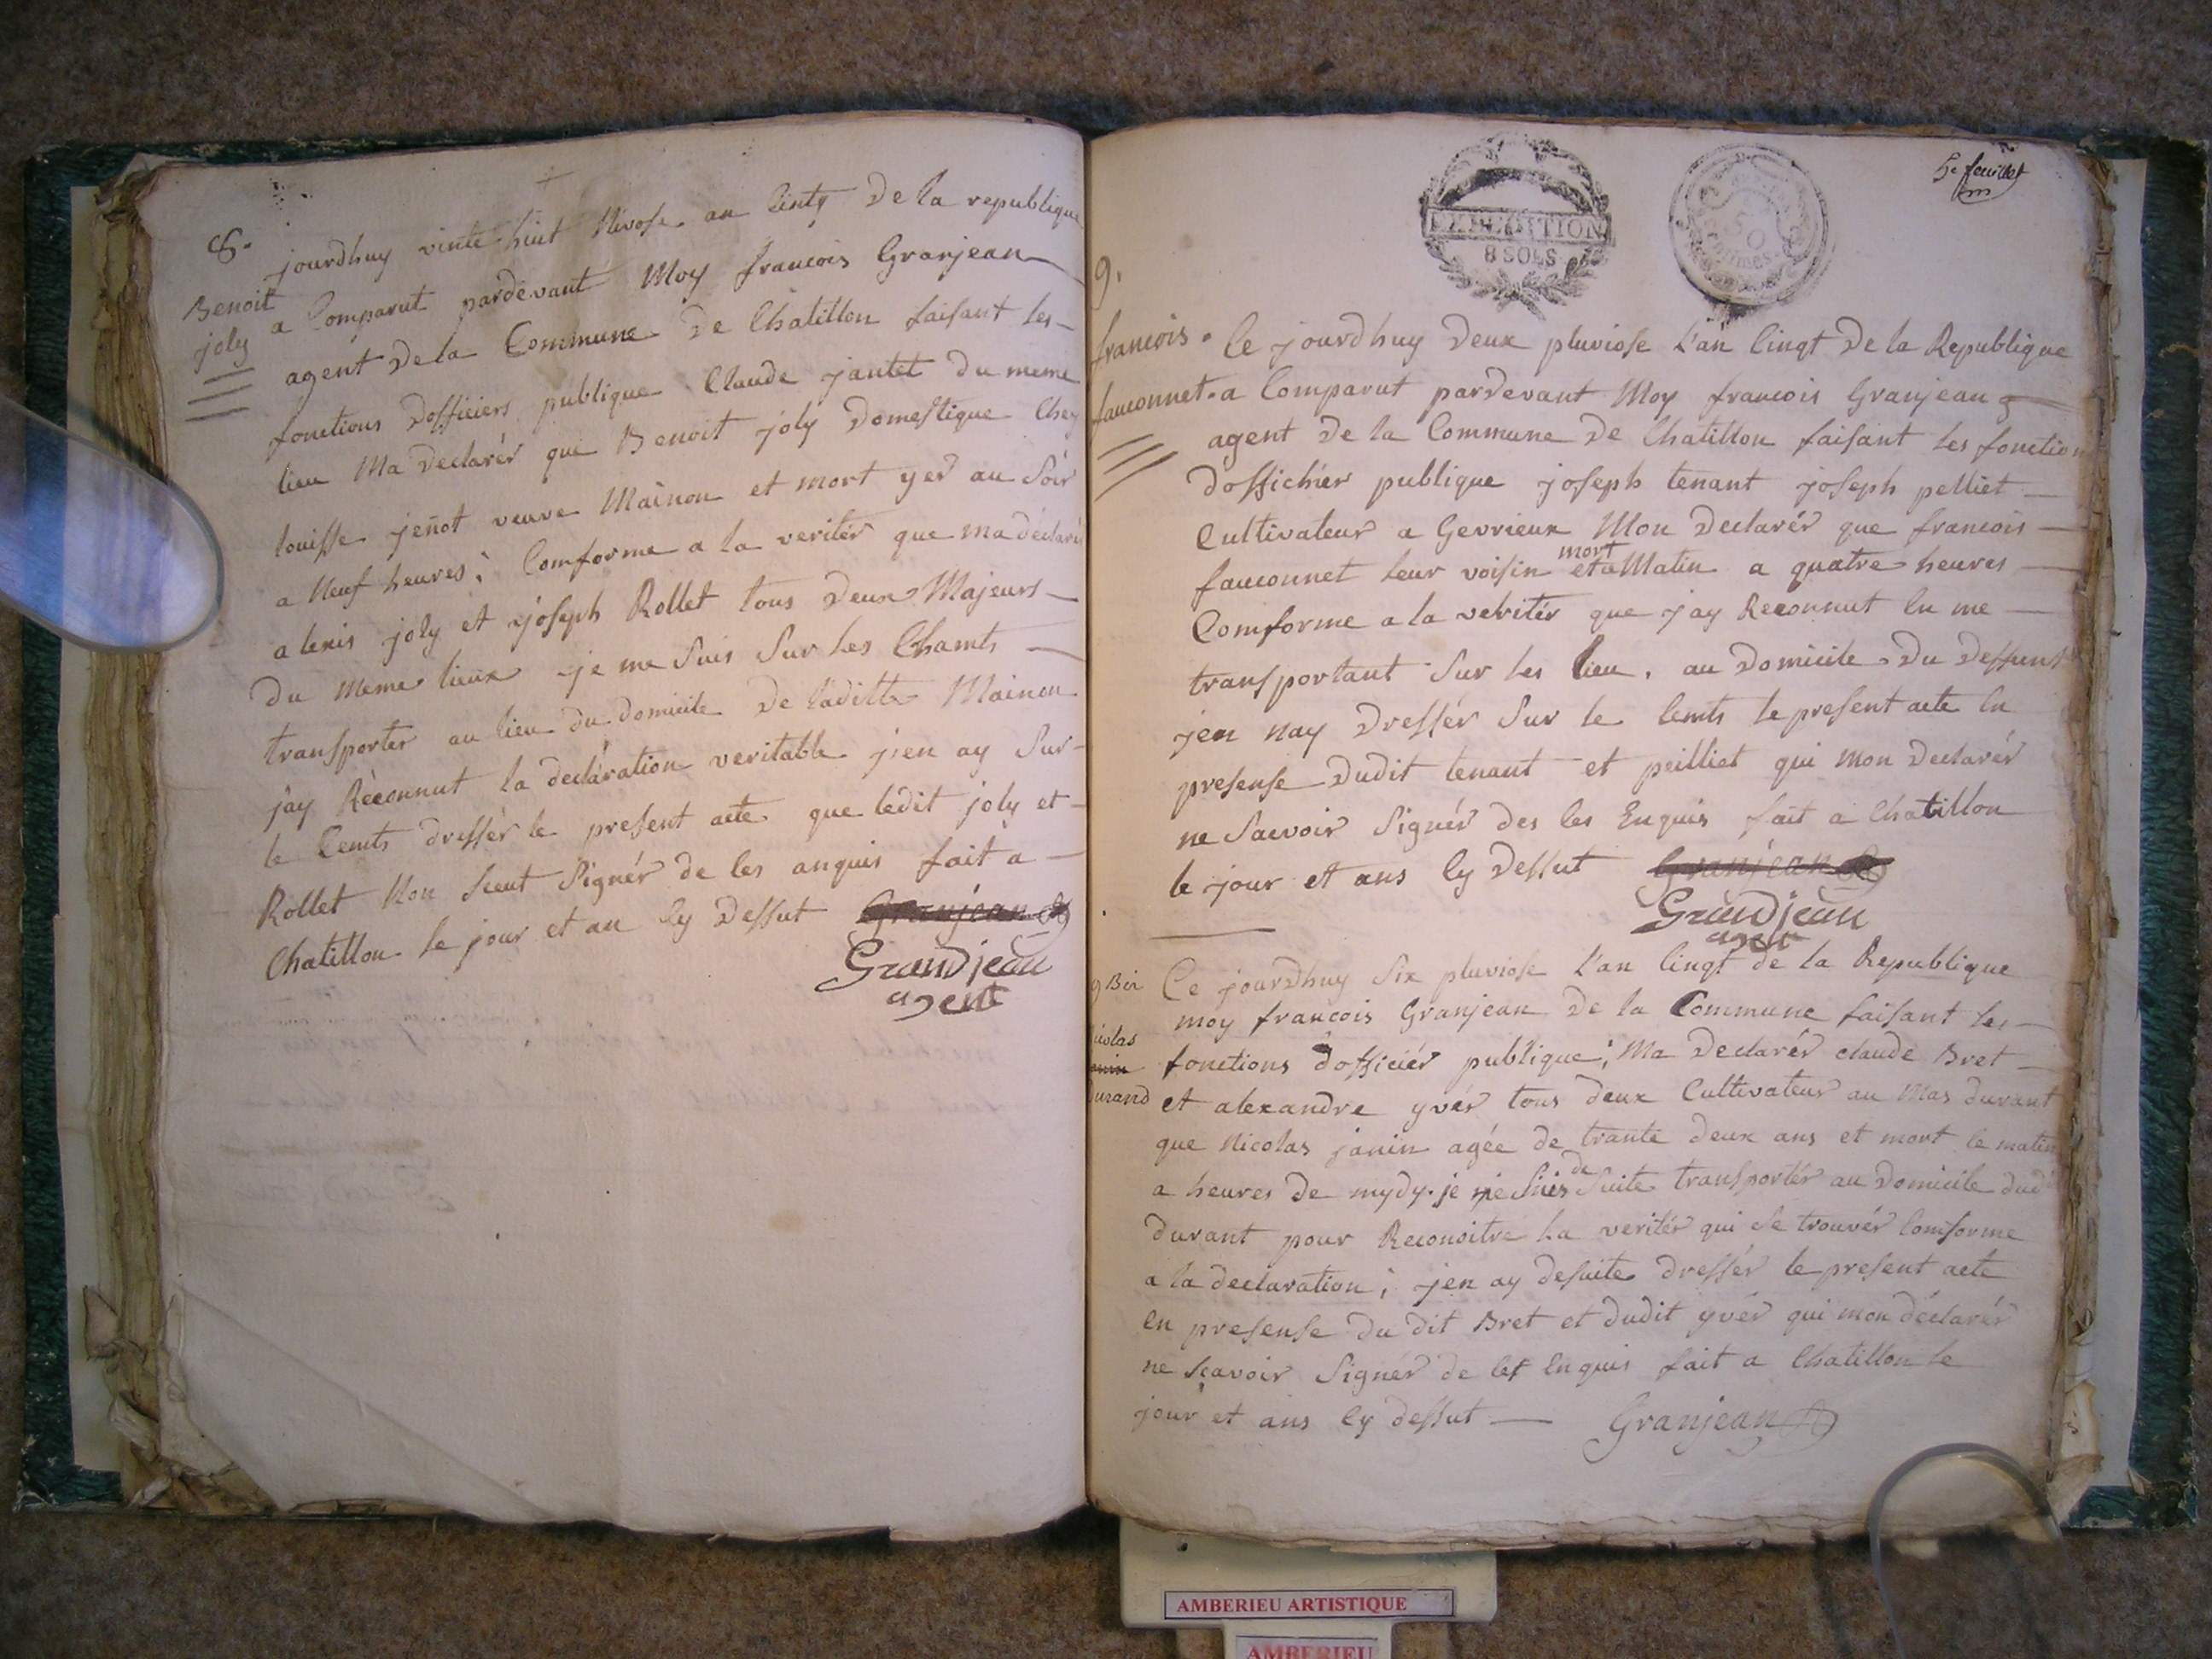 8.
jourdhuy vinte huit Nivose an cintq De la republique
Benoit
joly
a Comparut pardevant Moy francois Granjean
agent De la Commune De Chatillon faisant les
fonctions Dofficiers publique Claude jantet Du meme
lieu Ma Declarér que Benoit joly Domestique Chez
louisse jenot veuve Mainon et mort yer au Soir
a Neuf heures; Comforme a la veritér que ma déclaré
alexis joly et joseph Rollet tous Deux Majeurs
Du Meme lieux je me Suis Sur les Chamts
transporter au lieu du domicile De laditte Mainon
j'ay Réconnut la declaration veritable j'en ay Sur
le Cemts dressér le present acte que ledit joly et
Rollet Non Sceut Signér de les anquis fait a
Chatillon le jour et an Cy Dessut Granjean
Grandjean
agent
5e feuillet
EXPEDITION
8 SOLS
50
centimes
9.
francois
fauconnet
Ce jourdhuy Deux pluviose L'an Cinqt De la Republique
a Comparut pardevant Moy francois Granjean
agent De la Commune De Chatillon faisant les fonction
doffichiér publique joseph tenant joseph pelliet
Cultivateur a Gevrieux Mon Declarér que francois
fauconnet leur voisin et mort a Matin a quatre heures
Comforme a la veritér que jay Reconnut En me
transportant Sur les lieu, au Domicile Du Deffunt
jen nay Dressér Sur le Cemts le present acte En
presense Dudit tenant et peilliet qui mon Declarér
ne Sacvoir Signér des les Enquis fait a Chatillon
le jour et ans Cy Dessut Granjean
Grandjean
agent
9 Bis
Nicolas
janin
Durand
Ce jourdhuy Six pluviose L'an Cinqt de la Republique
moy francois Granjean De la Commune faisant les
fonctions dofficiér publique; Ma Declarér claude Bret
et alexandre yvér tous deux Cultivateur au Mas durant
que Nicolas janin agée de trante deux ans et mort le matin
a heures de mydy. je me Suis de Suite transportér au Domicile dud
durant pour Reconoitre la veritér qui Se trouvér Comforme
a la declaration; jen ay desuite dressér le present acte
En presense du dit Bret et dudit yvér qui mon déclarér
ne Sçavoir Signér de les Enquis fait a Chatillon le
jour et ans Cy dessut Granjean
AMBERIEU ARTISTIQUE
AMBERIEU